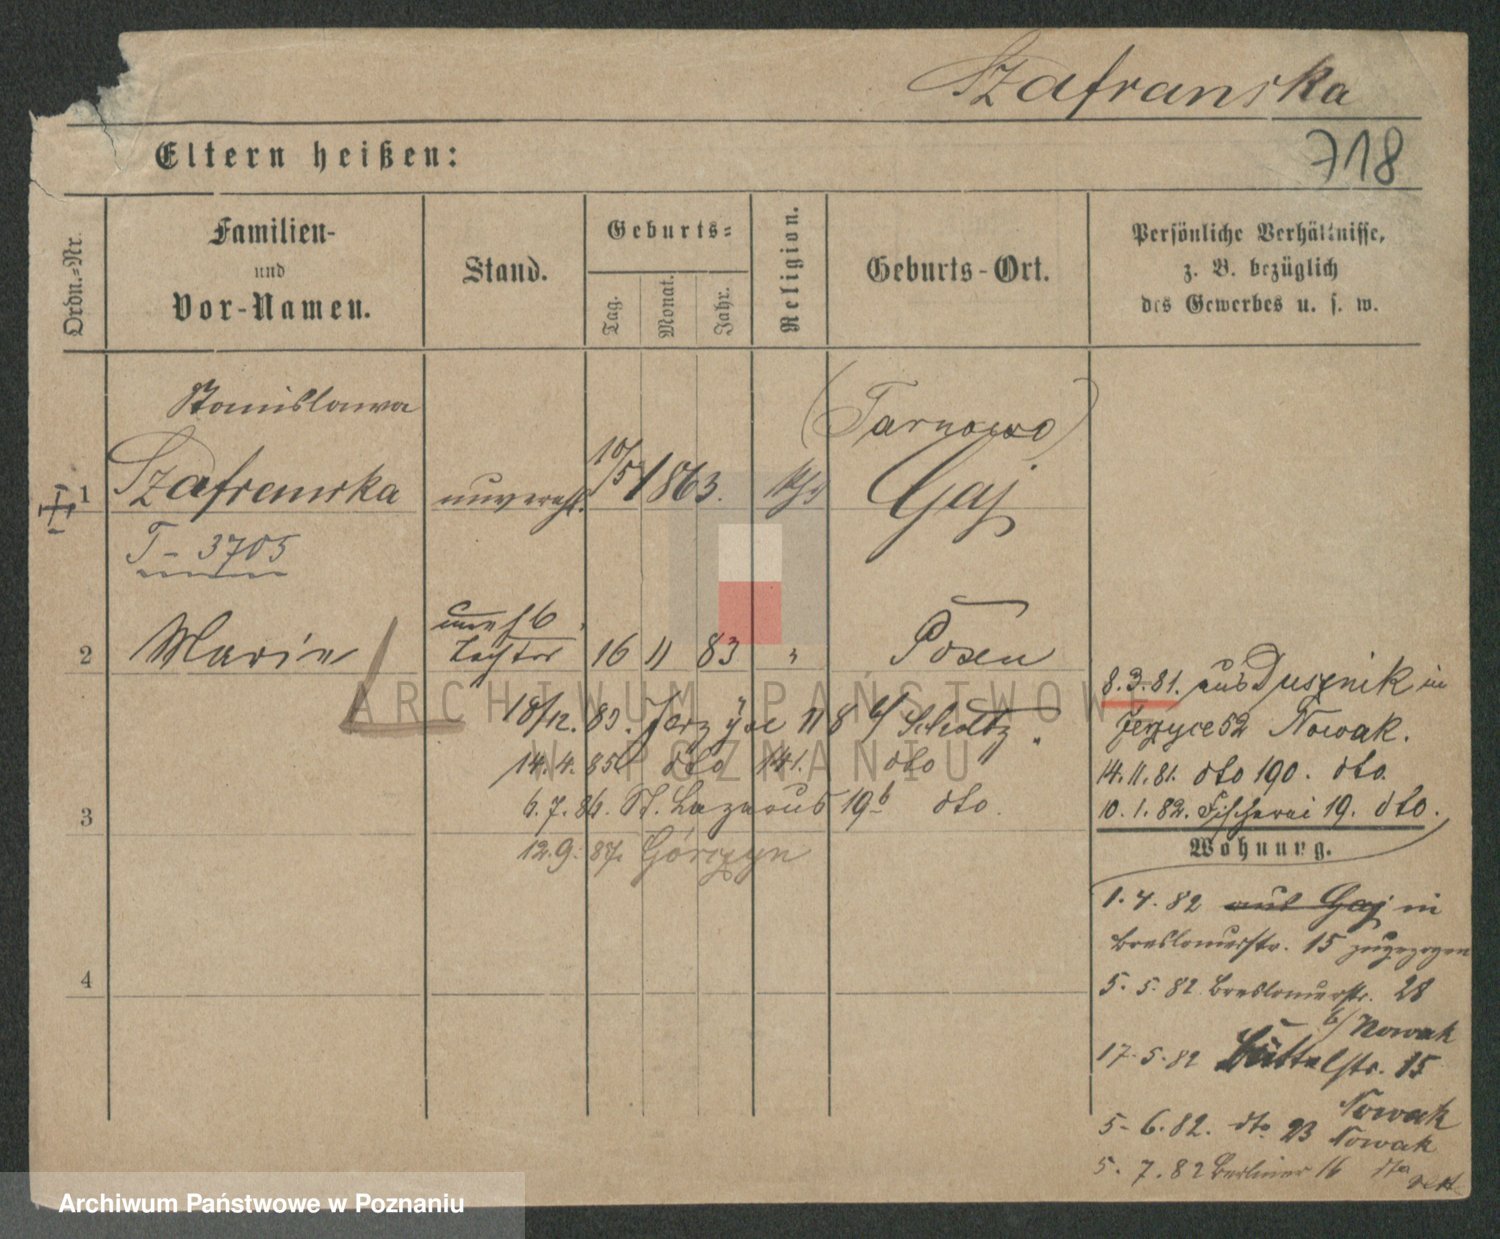 Szafranska
718
Eltern heißen:
Ordn.-Nr.
Familien-
und
Vor-Namen.
Stand.
Geburts-
Tag.
Monat.
Jahr.
Religion.
Geburts-Ort.
Persönliche Verhältnisse,
z. B. bezüglich
des Gewerbes u. s. w.
Stanislawa
(Tarnowo)
1 Szafranska unverehl. 10/5 1863. Gaj
T- 3705
unehl
2 Marie Tochter 16 11 83 " Posen
8.3.81. aus Dusznik in
18/12. 83. Jerzyce 118 b/ Scholtz.
Jerzyce 52 Nowak.
14.4.85. dto 141. dto
14.11.81. dto 190. dto.
3
6.7.86. St. Lazarus 19b dto.
10.1.82. Fischerei 19. dto.
12.9.87. Górczyn
Wohnung.
1.4.82 aus Gaj in
Breslauerstr. 15 zugezogen
4
5.5.82 Breslauerstr. 28
b/ Nowak
17.5.82 Büttelstr. 15
Nowak
5-6.82. dto 23 Nowak
5.7.82 Berliner 16 dto
ARCHIWUM PAŃSTWOWE
W POZNANIU
Archiwum Państwowe w Poznaniu